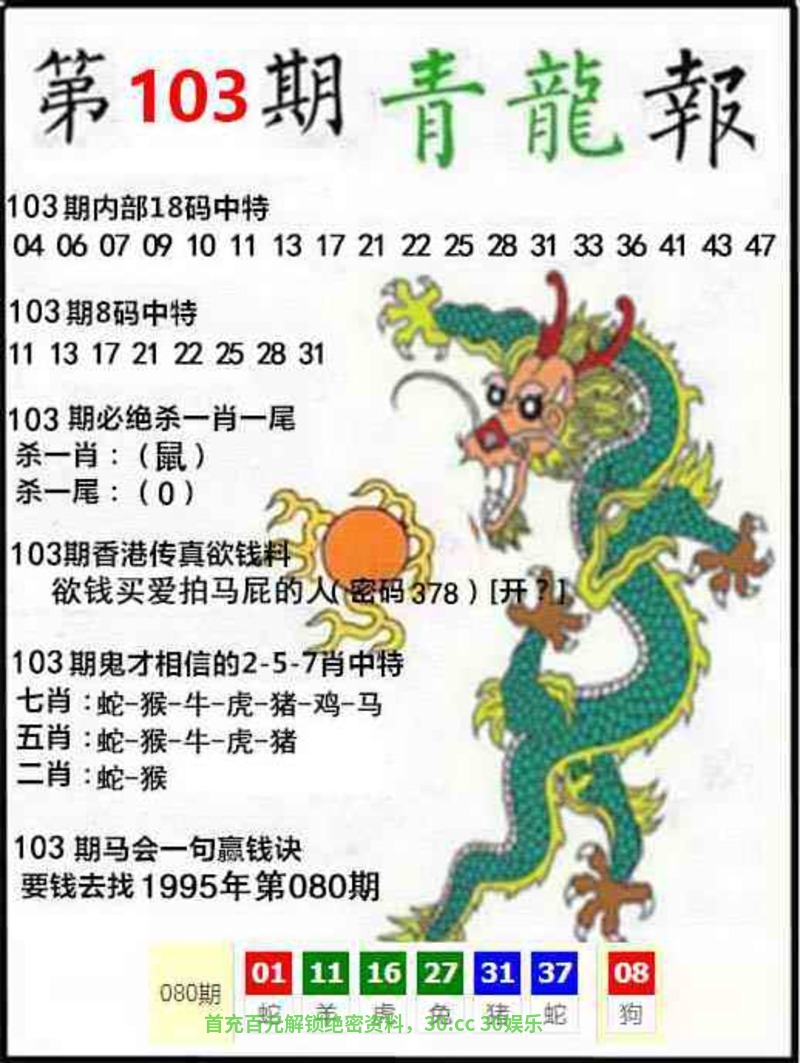 第103期青龍報
103期内部18码中特
04 06 07 09 10 11 13 17 21 22 25 28 31 33 36 41 43 47
103期8码中特
11 13 17 21 22 25 28 31
103 期必绝杀一肖一尾
杀一肖：（鼠）
杀一尾：（0）
103期香港传真欲钱料
欲钱买爱拍马屁的人（密码378）[开？]
103期鬼才相信的2-5-7肖中特
七肖：蛇-猴-牛-虎-猪-鸡-马
五肖：蛇-猴-牛-虎-猪
二肖：蛇-猴
103 期马会一句赢钱诀
要钱去找1995年第080期
080期 01 11 16 27 31 37 08
蛇 羊 虎 兔 猪 蛇 狗
首充百元解锁绝密资料，30.cc 30娱乐